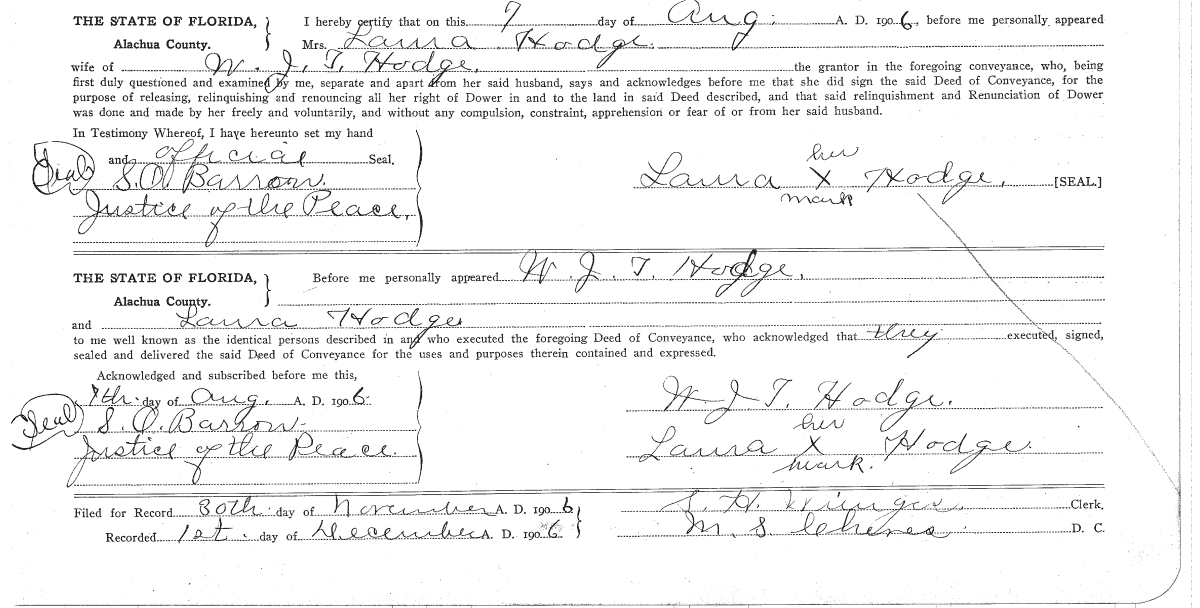 THE STATE OF FLORIDA, } I hereby certify that on this 7 day of Aug. A. D. 1906, before me personally appeared
Alachua County. Mrs. Laura Hodge.
wife of W. J. T. Hodge. the grantor in the foregoing conveyance, who, being
first duly questioned and examined by me, separate and apart from her said husband, says and acknowledges before me that she did sign the said Deed of Conveyance, for the
purpose of releasing, relinquishing and renouncing all her right of Dower in and to the land in said Deed described, and that said relinquishment and Renunciation of Dower
was done and made by her freely and voluntarily, and without any compulsion, constraint, apprehension or fear of or from her said husband.
In Testimony Whereof, I have hereunto set my hand
and official Seal.
Seal S. O. Barrow.
Justice of the Peace.
her
Laura X Hodge. [SEAL.]
mark
THE STATE OF FLORIDA, } Before me personally appeared W. J. T. Hodge,
Alachua County.
and Laura Hodge
to me well known as the identical persons described in and who executed the foregoing Deed of Conveyance, who acknowledged that they executed, signed,
sealed and delivered the said Deed of Conveyance for the uses and purposes therein contained and expressed.
Acknowledged and subscribed before me this,
7th. day of Aug. A. D. 1906.
Seal S. O. Barrow.
Justice of the Peace.
W. J. T. Hodge.
her
Laura X Hodge.
mark.
Filed for Record 30th. day of November A. D. 1906 } Clerk.
Recorded 1st. day of December A. D. 1906. M. S. D. C.